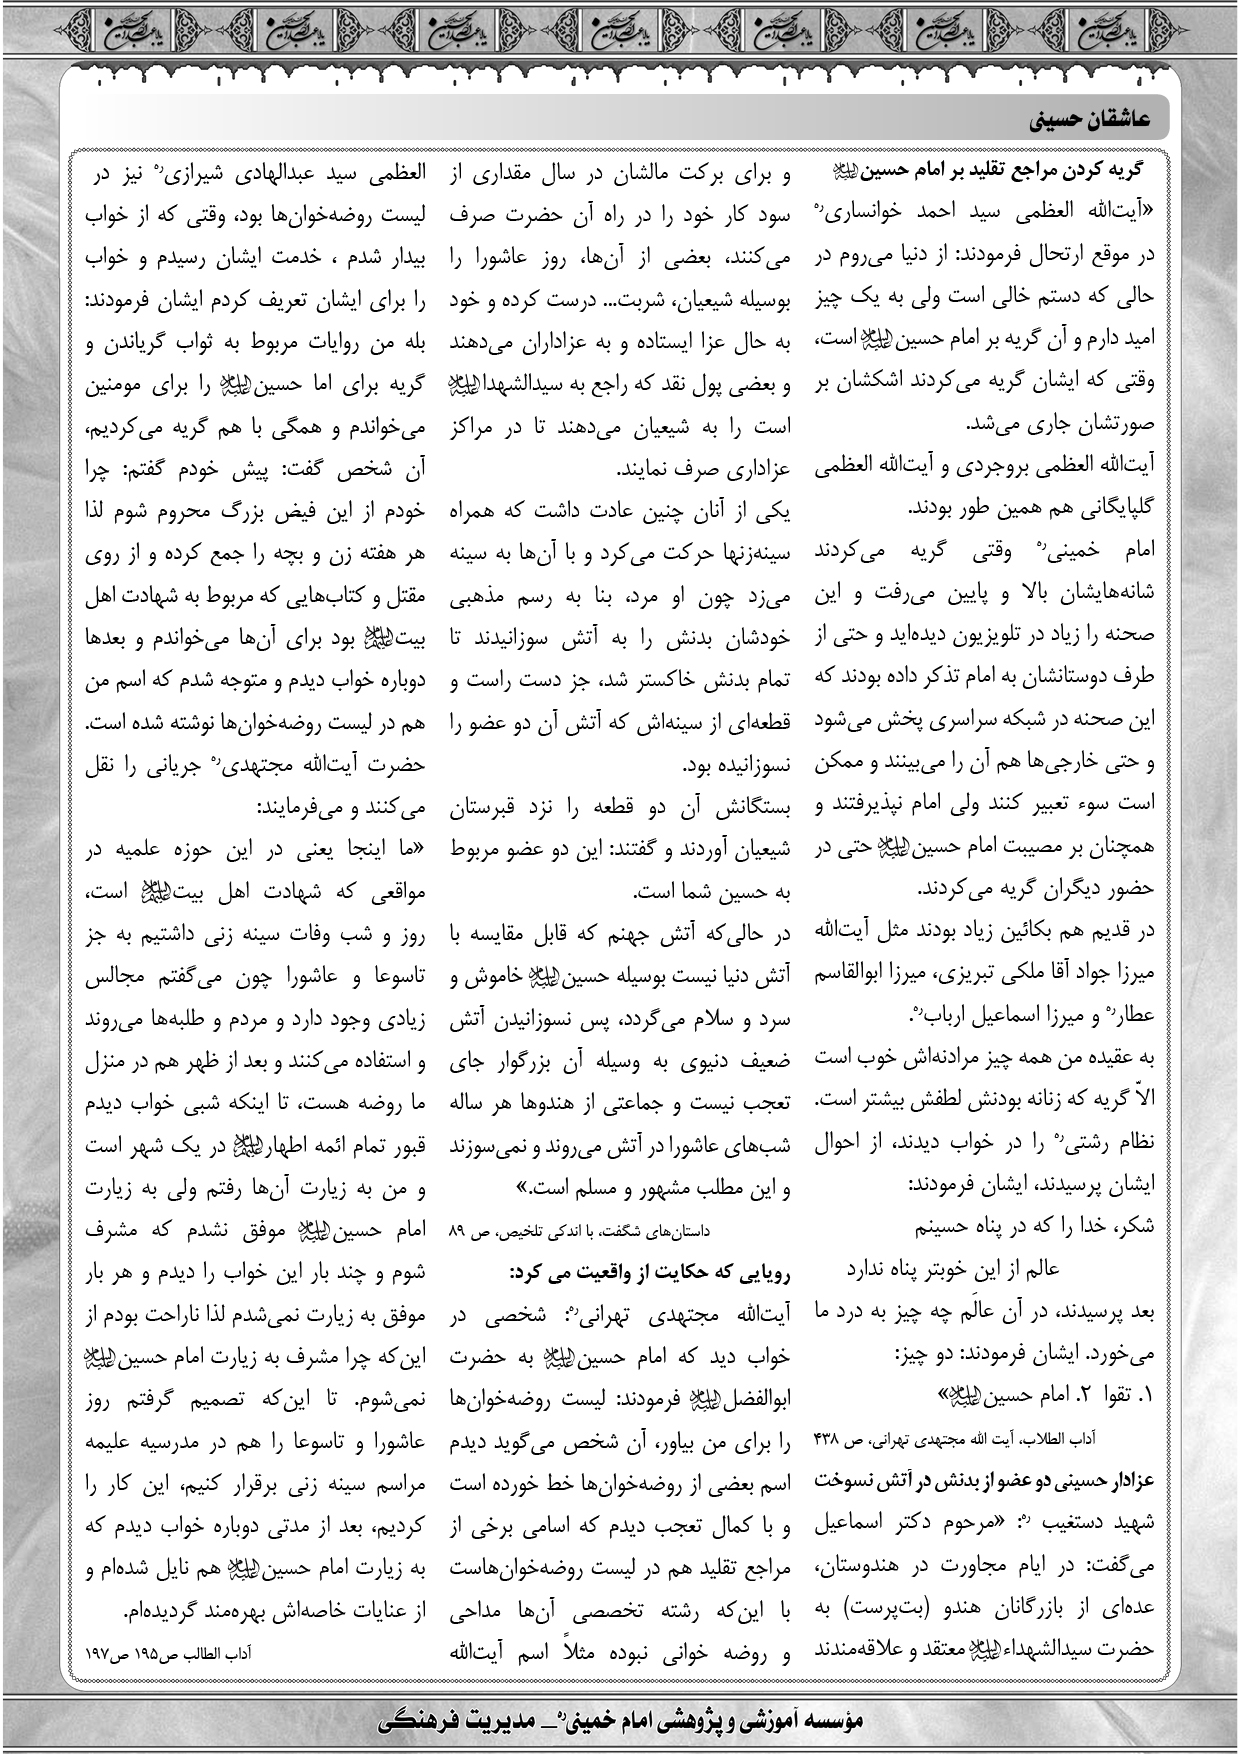 عاشقان حسینی
گریه کردن مراجع تقلید بر امام حسین علیه‌السلام
«آیت‌الله العظمی سید احمد خوانساری ره
در موقع ارتحال فرمودند: از دنیا می‌روم در
حالی که دستم خالی است ولی به یک چیز
امید دارم و آن گریه بر امام حسین علیه‌السلام است،
وقتی که ایشان گریه می‌کردند اشکشان بر
صورتشان جاری می‌شد.
آیت‌الله العظمی بروجردی و آیت‌الله العظمی
گلپایگانی هم همین طور بودند.
امام خمینی ره وقتی گریه می‌کردند
شانه‌هایشان بالا و پایین می‌رفت و این
صحنه را زیاد در تلویزیون دیده‌اید و حتی از
طرف دوستانشان به امام تذکر داده بودند که
این صحنه در شبکه سراسری پخش می‌شود
و حتی خارجی‌ها هم آن را می‌بینند و ممکن
است سوء تعبیر کنند ولی امام نپذیرفتند و
همچنان بر مصیبت امام حسین علیه‌السلام حتی در
حضور دیگران گریه می‌کردند.
در قدیم هم بکائین زیاد بودند مثل آیت‌الله
میرزا جواد آقا ملکی تبریزی، میرزا ابوالقاسم
عطار ره و میرزا اسماعیل ارباب ره.
به عقیده من همه چیز مرادنه‌اش خوب است
الاّ گریه که زنانه بودنش لطفش بیشتر است.
نظام رشتی ره را در خواب دیدند، از احوال
ایشان پرسیدند، ایشان فرمودند:
شکر، خدا را که در پناه حسینم
عالم از این خوبتر پناه ندارد
بعد پرسیدند، در آن عالَم چه چیز به درد ما
می‌خورد. ایشان فرمودند: دو چیز:
۱. تقوا ۲. امام حسین علیه‌السلام»
آداب الطلاب، آیت الله مجتهدی تهرانی، ص ۴۳۸
عزادار حسینی دو عضو از بدنش در آتش نسوخت
شهید دستغیب ره: «مرحوم دکتر اسماعیل
می‌گفت: در ایام مجاورت در هندوستان،
عده‌ای از بازرگانان هندو (بت‌پرست) به
حضرت سیدالشهداء علیه‌السلام معتقد و علاقه‌مندند
و برای برکت مالشان در سال مقداری از
سود کار خود را در راه آن حضرت صرف
می‌کنند، بعضی از آن‌ها، روز عاشورا را
بوسیله شیعیان، شربت... درست کرده و خود
به حال عزا ایستاده و به عزاداران می‌دهند
و بعضی پول نقد که راجع به سیدالشهدا علیه‌السلام
است را به شیعیان می‌دهند تا در مراکز
عزاداری صرف نمایند.
یکی از آنان چنین عادت داشت که همراه
سینه‌زنها حرکت می‌کرد و با آن‌ها به سینه
می‌زد چون او مرد، بنا به رسم مذهبی
خودشان بدنش را به آتش سوزانیدند تا
تمام بدنش خاکستر شد، جز دست راست و
قطعه‌ای از سینه‌اش که آتش آن دو عضو را
نسوزانیده بود.
بستگانش آن دو قطعه را نزد قبرستان
شیعیان آوردند و گفتند: این دو عضو مربوط
به حسین شما است.
در حالی‌که آتش جهنم که قابل مقایسه با
آتش دنیا نیست بوسیله حسین علیه‌السلام خاموش و
سرد و سلام می‌گردد، پس نسوزانیدن آتش
ضعیف دنیوی به وسیله آن بزرگوار جای
تعجب نیست و جماعتی از هندوها هر ساله
شب‌های عاشورا در آتش می‌روند و نمی‌سوزند
و این مطلب مشهور و مسلم است.»
داستان‌های شگفت، با اندکی تلخیص، ص ۸۹
رویایی که حکایت از واقعیت می کرد:
آیت‌الله مجتهدی تهرانی ره: شخصی در
خواب دید که امام حسین علیه‌السلام به حضرت
ابوالفضل علیه‌السلام فرمودند: لیست روضه‌خوان‌ها
را برای من بیاور، آن شخص می‌گوید دیدم
اسم بعضی از روضه‌خوان‌ها خط خورده است
و با کمال تعجب دیدم که اسامی برخی از
مراجع تقلید هم در لیست روضه‌خوان‌هاست
با این‌که رشته تخصصی آن‌ها مداحی
و روضه خوانی نبوده مثلاً اسم آیت‌الله
العظمی سید عبدالهادی شیرازی ره نیز در
لیست روضه‌خوان‌ها بود، وقتی که از خواب
بیدار شدم ، خدمت ایشان رسیدم و خواب
را برای ایشان تعریف کردم ایشان فرمودند:
بله من روایات مربوط به ثواب گریاندن و
گریه برای اما حسین علیه‌السلام را برای مومنین
می‌خواندم و همگی با هم گریه می‌کردیم،
آن شخص گفت: پیش خودم گفتم: چرا
خودم از این فیض بزرگ محروم شوم لذا
هر هفته زن و بچه را جمع کرده و از روی
مقتل و کتاب‌هایی که مربوط به شهادت اهل
بیت علیهم‌السلام بود برای آن‌ها می‌خواندم و بعدها
دوباره خواب دیدم و متوجه شدم که اسم من
هم در لیست روضه‌خوان‌ها نوشته شده است.
حضرت آیت‌الله مجتهدی ره جریانی را نقل
می‌کنند و می‌فرمایند:
«ما اینجا یعنی در این حوزه علمیه در
مواقعی که شهادت اهل بیت علیهم‌السلام است،
روز و شب وفات سینه زنی داشتیم به جز
تاسوعا و عاشورا چون می‌گفتم مجالس
زیادی وجود دارد و مردم و طلبه‌ها می‌روند
و استفاده می‌کنند و بعد از ظهر هم در منزل
ما روضه هست، تا اینکه شبی خواب دیدم
قبور تمام ائمه اطهار علیهم‌السلام در یک شهر است
و من به زیارت آن‌ها رفتم ولی به زیارت
امام حسین علیه‌السلام موفق نشدم که مشرف
شوم و چند بار این خواب را دیدم و هر بار
موفق به زیارت نمی‌شدم لذا ناراحت بودم از
این‌که چرا مشرف به زیارت امام حسین علیه‌السلام
نمی‌شوم. تا این‌که تصمیم گرفتم روز
عاشورا و تاسوعا را هم در مدرسیه علیمه
مراسم سینه زنی برقرار کنیم، این کار را
کردیم، بعد از مدتی دوباره خواب دیدم که
به زیارت امام حسین علیه‌السلام هم نایل شده‌ام و
از عنایات خاصه‌اش بهره‌مند گردیده‌ام.
آداب الطالب ص۱۹۵ ص۱۹۷
مؤسسه آموزشی و پژوهشی امام خمینی ره_ مدیریت فرهنگی